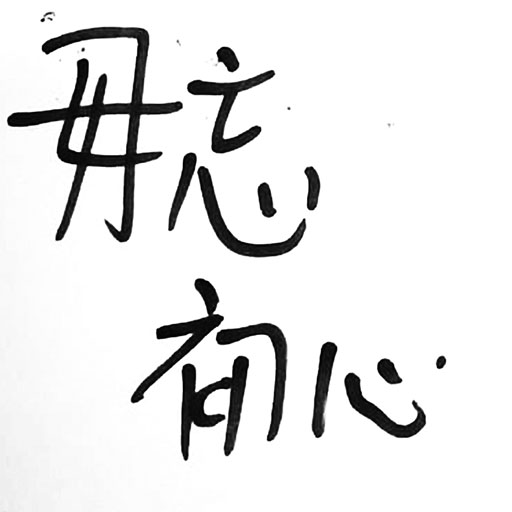 毋忘
初心